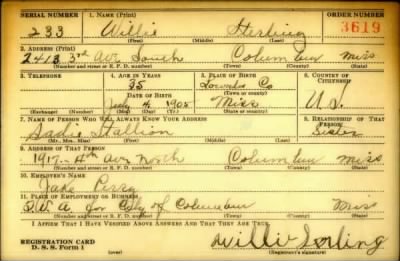 SERIAL NUMBER 1. NAME (Print) ORDER NUMBER
233 Willie Sterling 3619
(First) (Middle) (Last)
2. ADDRESS (Print)
2413 3rd Ave South Columbus Miss
(Number and street or R. F. D. number) (Town) (County) (State)
3. TELEPHONE 4. AGE IN YEARS 5. PLACE OF BIRTH 6. COUNTRY OF CITIZENSHIP
35 Lowndes Co
DATE OF BIRTH (Town or county)
July 4 1905 Miss U.S.
(Exchange) (Number) (Mo.) (Day) (Yr.) (State or country)
7. NAME OF PERSON WHO WILL ALWAYS KNOW YOUR ADDRESS 8. RELATIONSHIP OF THAT PERSON
Sadie Stallion Sister
(Mr., Mrs., Miss) (First) (Middle) (Last)
9. ADDRESS OF THAT PERSON
1917-4th Ave North Columbus Miss
(Number and street or R. F. D. number) (Town) (County) (State)
10. EMPLOYER'S NAME
Jake Perry
11. PLACE OF EMPLOYMENT OR BUSINESS
W.A. for City of Columbus Miss
(Number and street or R. F. D. number) (Town) (County) (State)
I AFFIRM THAT I HAVE VERIFIED ABOVE ANSWERS AND THAT THEY ARE TRUE.
REGISTRATION CARD
D. S. S. Form 1 (over) (Registrant's signature)